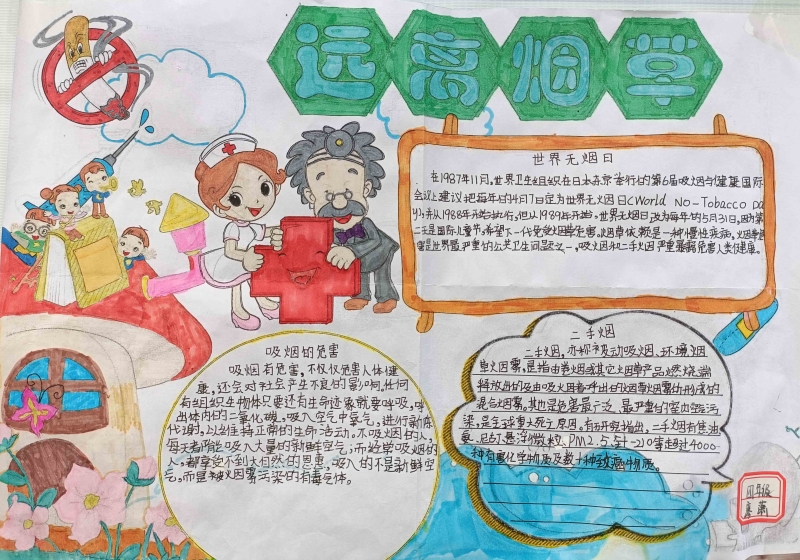 远离烟草
世界无烟日
在1987年11月，世界卫生组织在日本东京举行的第6届吸烟与健康国际
会议上建议把每年的4月7日定为世界无烟日（World No-Tobacco Da
y），并从1988年开始执行，但从1989年开始，世界无烟日改为每年的5月31日，因为第
二天是国际儿童节，希望下一代免受烟草危害。烟草依赖是一种慢性疾病，烟草危
害是世界最严重的公共卫生问题之一，吸烟和二手烟严重危害人类健康。
吸烟的危害
吸烟有危害，不仅仅危害人体健
康，还会对社会产生不良的影响。任何
有组织生物体只要还有生命迹象就要呼吸，呼
出体内的二氧化碳，吸入空气中氧气，进行新陈
代谢，以维持正常的生命活动。不吸烟的人，
每天都能吸入大量的新鲜空气；而经常吸烟的
人，都享受不到大自然的恩惠，吸入的不是新鲜空
气，而是被烟雾污染的有毒气体。
二手烟
二手烟，亦称被动吸烟、环境烟
草烟雾，是指由卷烟或其它烟草产品燃烧端
释放出的及由吸烟者呼出的烟草烟雾所形成的
混合烟雾。其也是危害最广泛、最严重的室内空气污
染，是全球重大死亡原因。有研究指出，二手烟有焦油、
氨、尼古丁、悬浮微粒、PM2.5、钋-210等超过4000
种有害化学物质及数十种致癌物质。
四年级